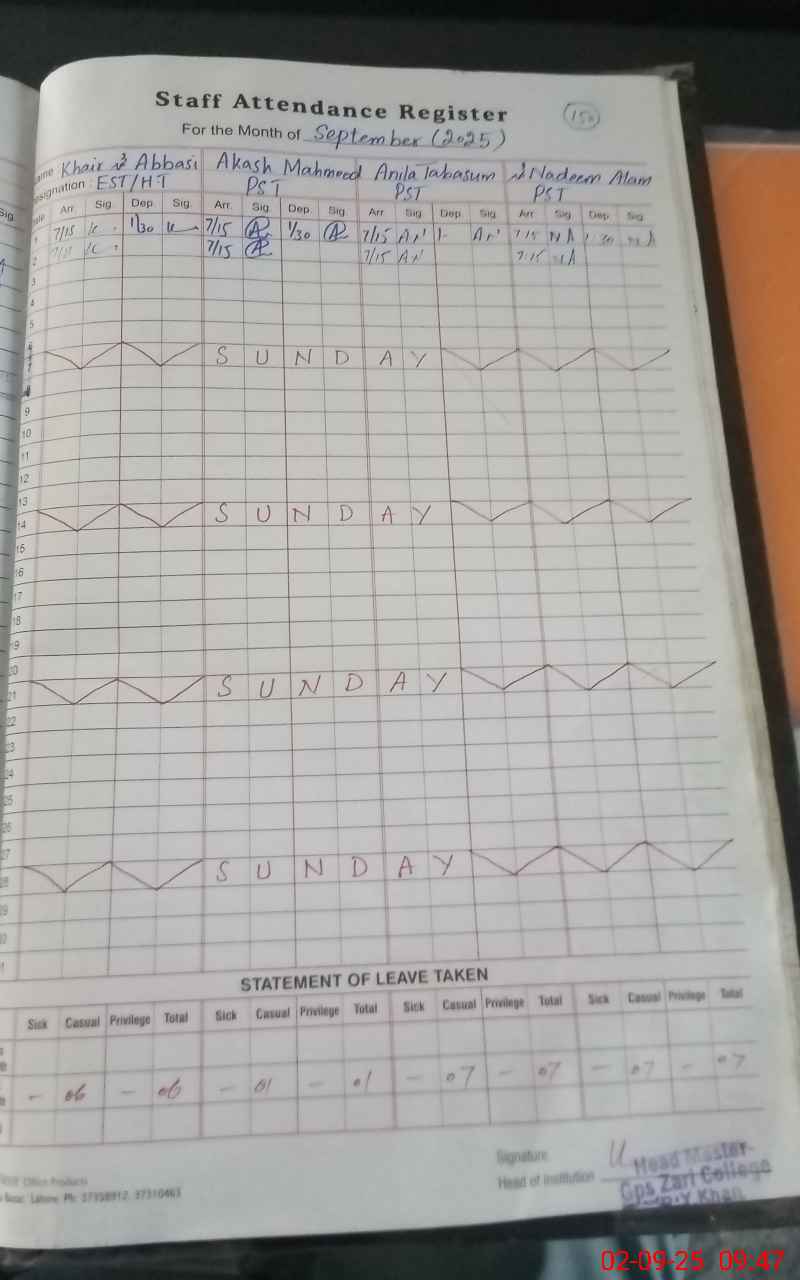 Staff Attendance Register
For the Month of September (2025)
Khair Abbasi Akash Mahmood Anila Tabasum Nadeem Alam
signation : EST/HT PST PST PST
Arr. Sig. Dep. Sig. Arr. Sig. Dep. Sig. Arr. Sig. Dep. Sig. Arr. Sig. Dep. Sig.
1 7/15 1/30 7/15 1/30 7/15 7:15 NA
2 7/15 7/15 7:15 NA
3
4
5
S U N D A Y
7
9
10
11
12
13
S U N D A Y
14
15
16
17
18
19
20
S U N D A Y
21
22
23
24
25
26
27
S U N D A Y
28
STATEMENT OF LEAVE TAKEN
Sick Casual Privilege Total Sick Casual Privilege Total Sick Casual Privilege Total Sick Casual Privilege Total
- 06 - 06 - 01 - 01 - 07 - 07 - 07 - 07
Signature
Head of Institution
Head Master
Gps Zari College
Office Products
Lahore. Ph: 37358912, 37310463
02-09-25 09:47